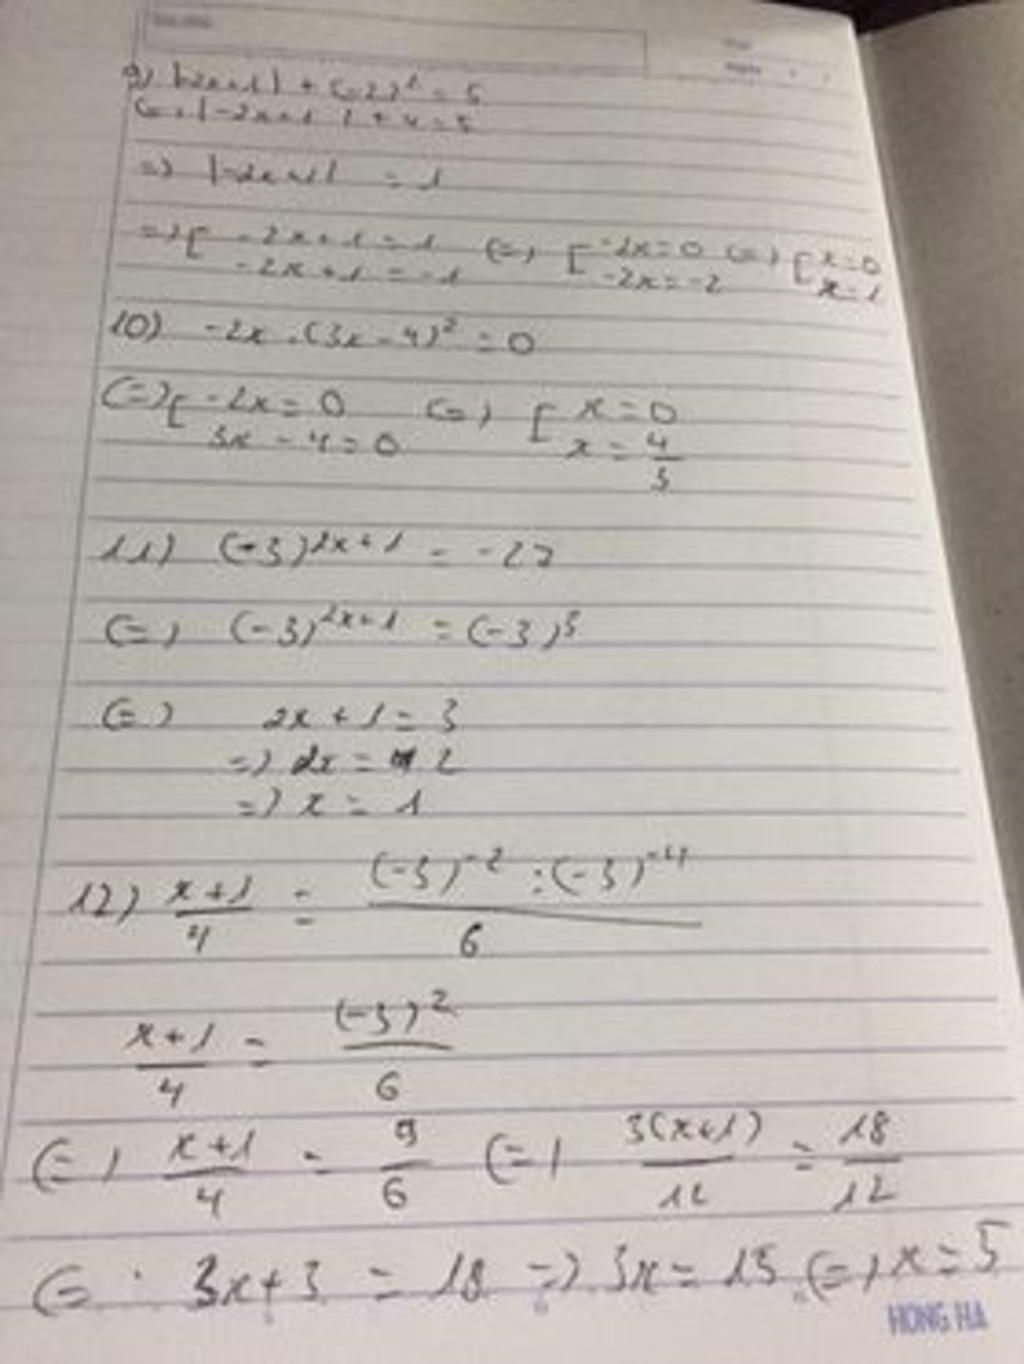 9) |-2x+1| + (-2)² = 5
(=) |-2x+1| + 4 = 5
=) |-2x+1| = 1
=) [ -2x+1=1 (=) [ -2x=0 (=) [ x=0
-2x+1=-1 -2x=-2 x=1
10) -2x.(3x-4)² = 0
(=) [ -2x=0 (=) [ x=0
3x-4=0 x=4/3
11) (-3)²ˣ⁺¹ = -27
(=) (-3)²ˣ⁺¹ = (-3)³
(=) 2x+1=3
=) 2x = 2
=) x = 1
12) x+1/4 = (-3)⁻² : (-3)⁻⁴/6
x+1/4 = (-3)²/6
(=) x+1/4 = 9/6 (=) 3(x+1)/12 = 18/12
(= 3x+3 = 18 =) 3x = 15 (=) x = 5
HONG HA